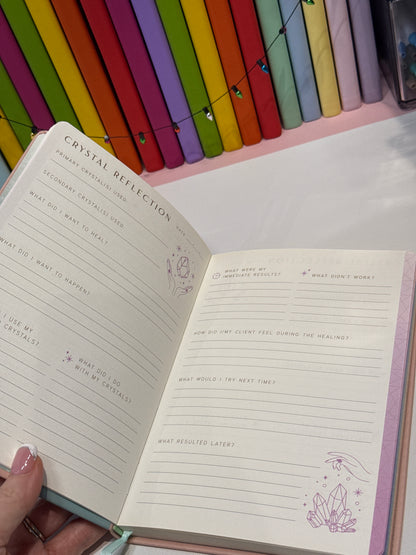 CRYSTAL REFLECTION
PRIMARY CRYSTAL(S) USED:
SECONDARY CRYSTAL(S) USED:
WHAT DID I WANT TO HEAL?
WHAT DID I WANT TO HAPPEN?
I USE MY
CRYSTALS?
WHAT DID I DO
WITH MY CRYSTALS?
WHAT WERE MY
IMMEDIATE RESULTS?
WHAT DIDN'T WORK?
HOW DID I/MY CLIENT FEEL DURING THE HEALING?
WHAT WOULD I TRY NEXT TIME?
WHAT RESULTED LATER?